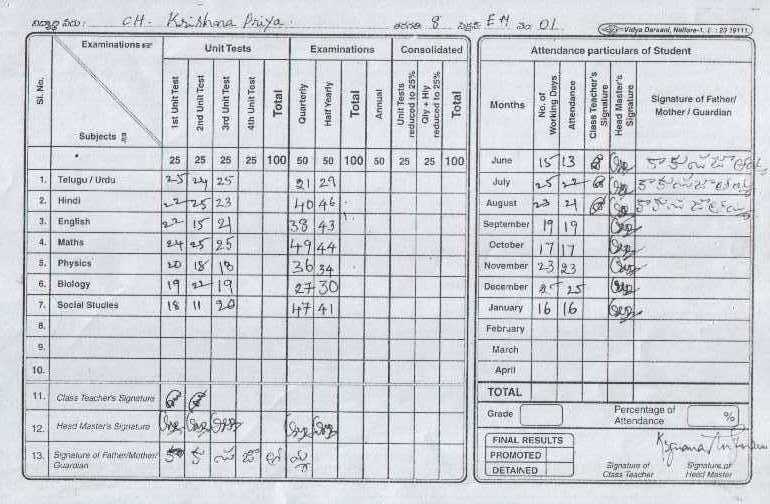 విద్యార్థి పేరు: CH. Krishna Priya. తరగతి 8 సెక్షన్ EM నెం 01.
Vidya Darsani, Nellore-1,
Examinations Unit Tests Examinations Consolidated
Sl. No. Subjects 1st Unit Test 2nd Unit Test 3rd Unit Test 4th Unit Test Total Quarterly Half Yearly Total Annual Unit Tests reduced to 25% Qly + Hly reduced to 25% Total
25 25 25 25 100 50 50 100 50 25 25 100
1. Telugu / Urdu 25 24 25 21 29
2. Hindi 22 25 23 40 46
3. English 22 15 21 38 43
4. Maths 24 25 25 49 44
5. Physics 20 18 18 36 34
6. Biology 19 22 19 27 30
7. Social Studies 18 11 20 47 41
8.
9.
10.
11. Class Teacher's Signature
12. Head Master's Signature
13. Signature of Father/Mother/ Guardian
Attendance particulars of Student
Months No. of Working Days Attendance Class Teacher's Signature Head Master's Signature Signature of Father/ Mother / Guardian
June 15 13
July 25 22
August 23 21
September 19 19
October 17 17
November 23 23
December 25 25
January 16 16
February
March
April
TOTAL
Grade Percentage of Attendance %
FINAL RESULTS
PROMOTED
DETAINED
Signature of Class Teacher Signature of Head Master